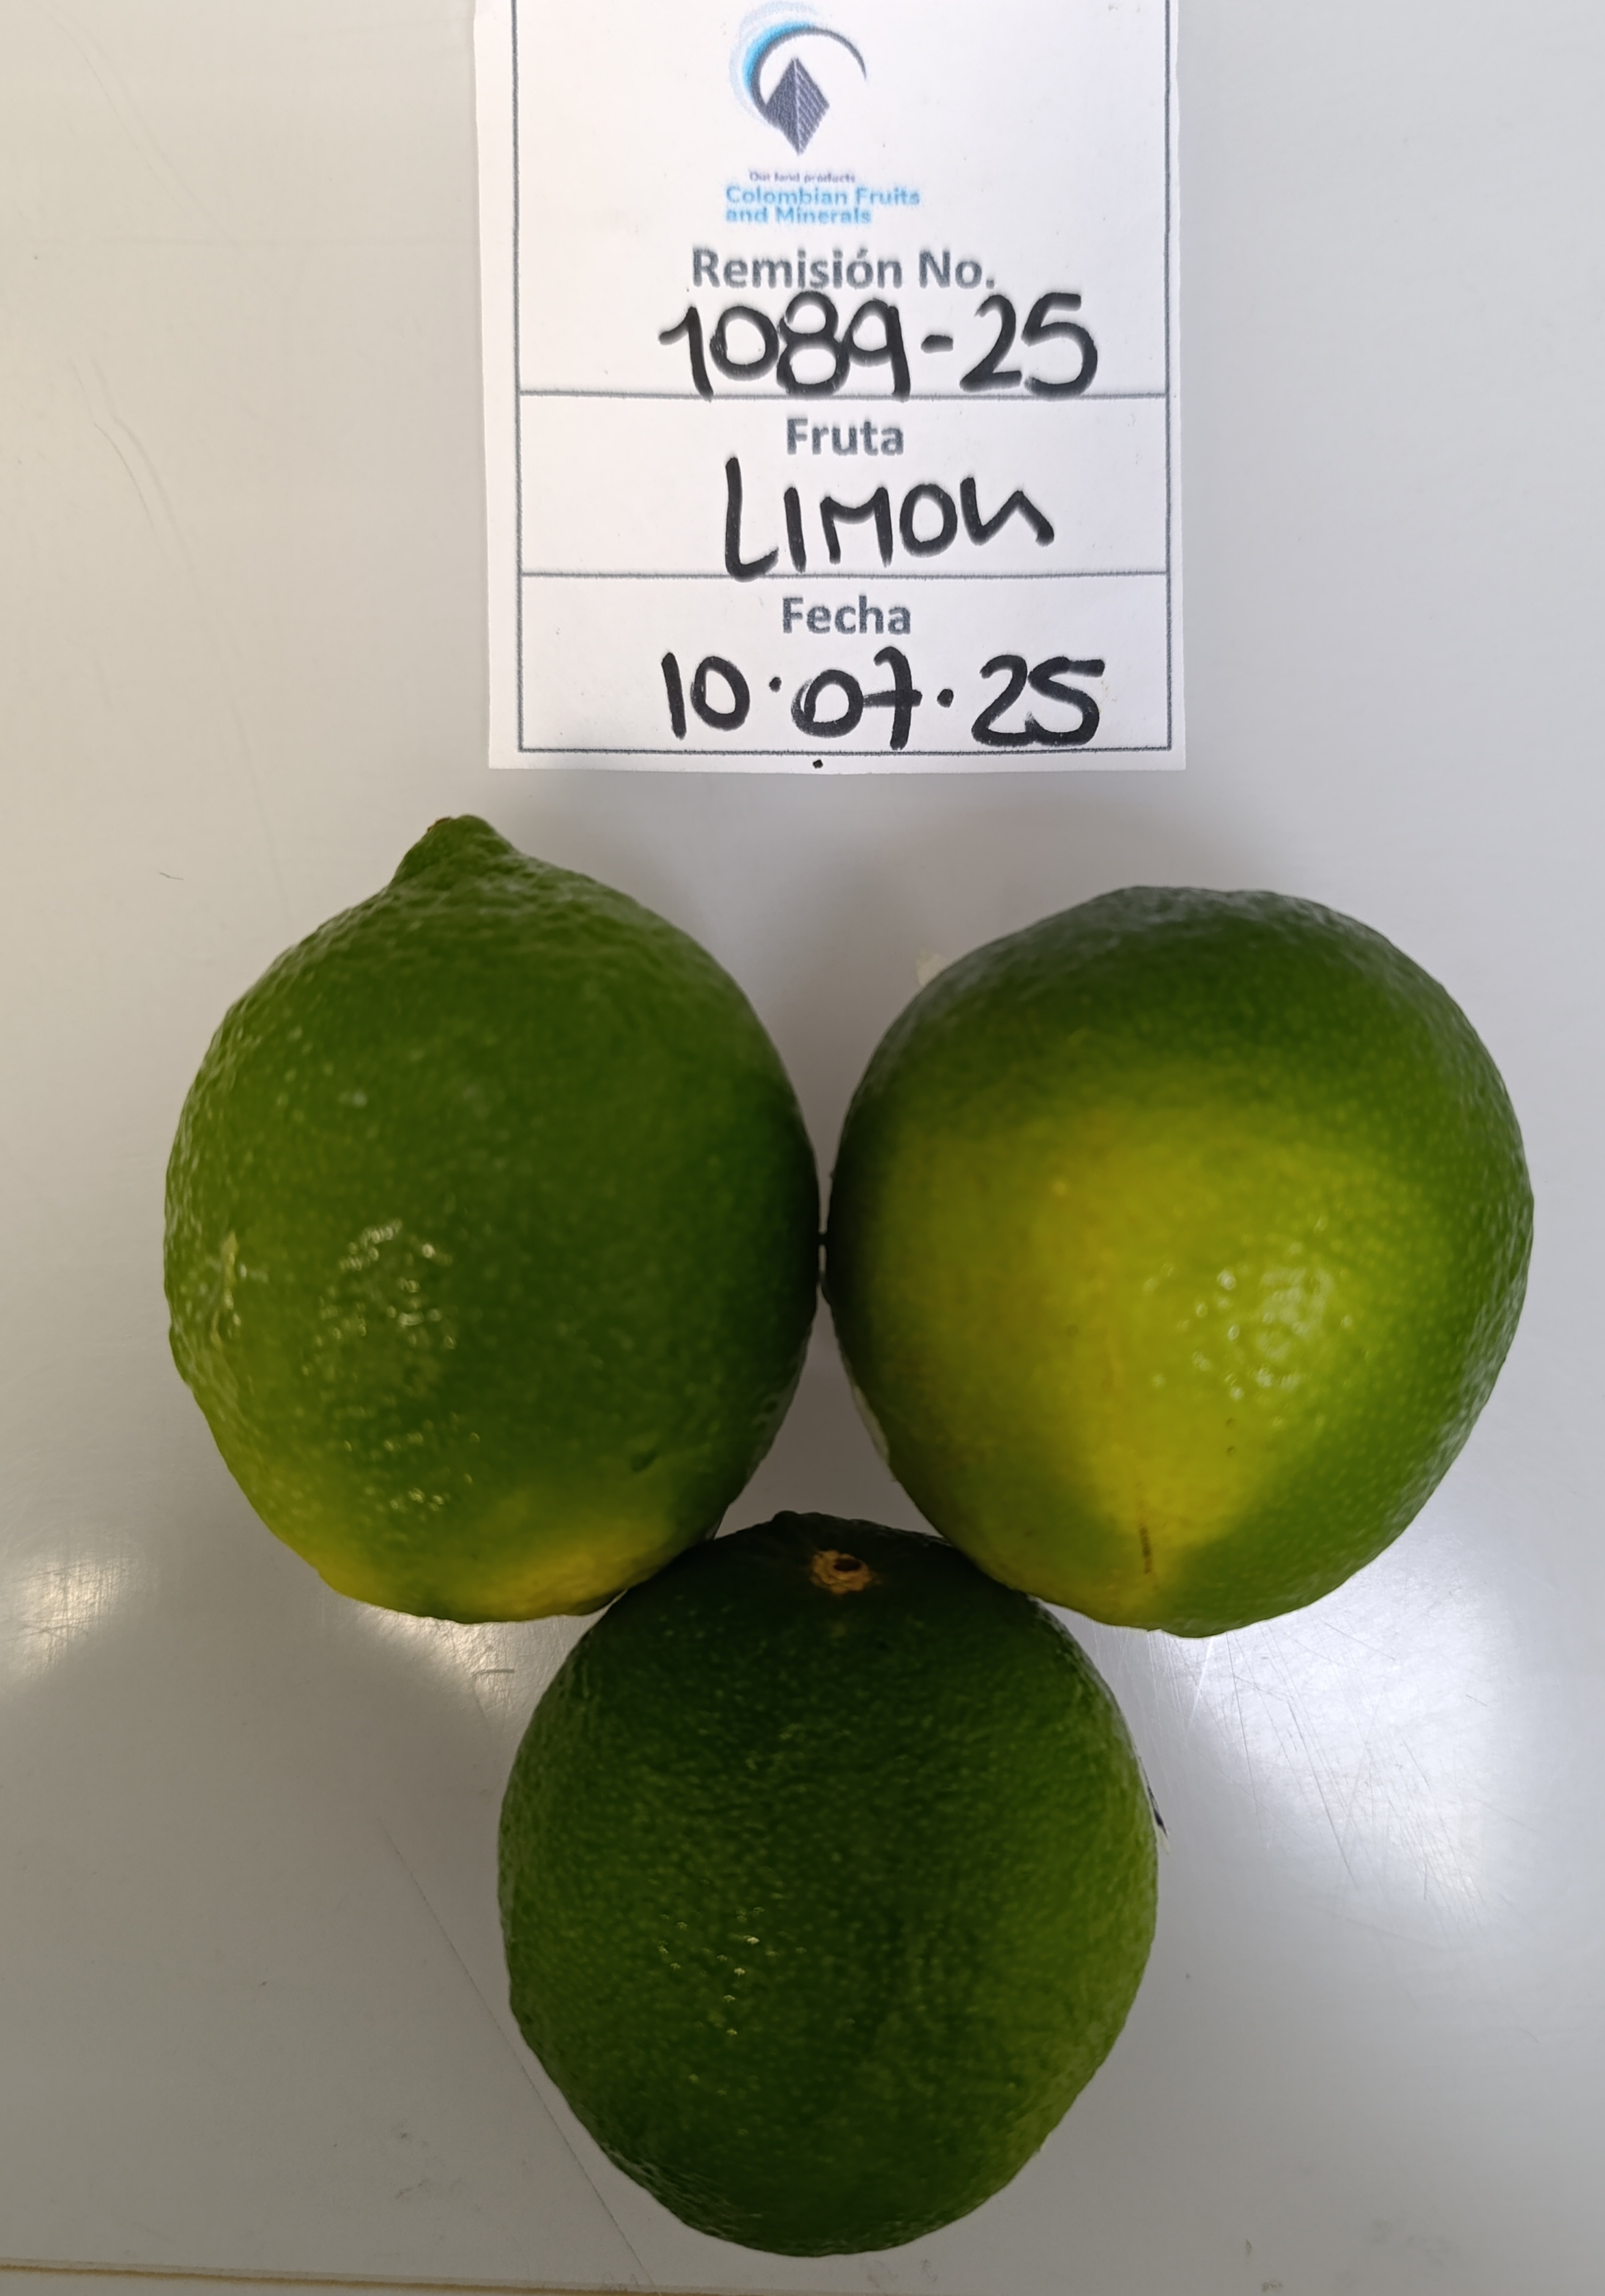 Our land products
Colombian Fruits
and Minerals
Remisión No.
1089-25
Fruta
LIMON
Fecha
10·07·25